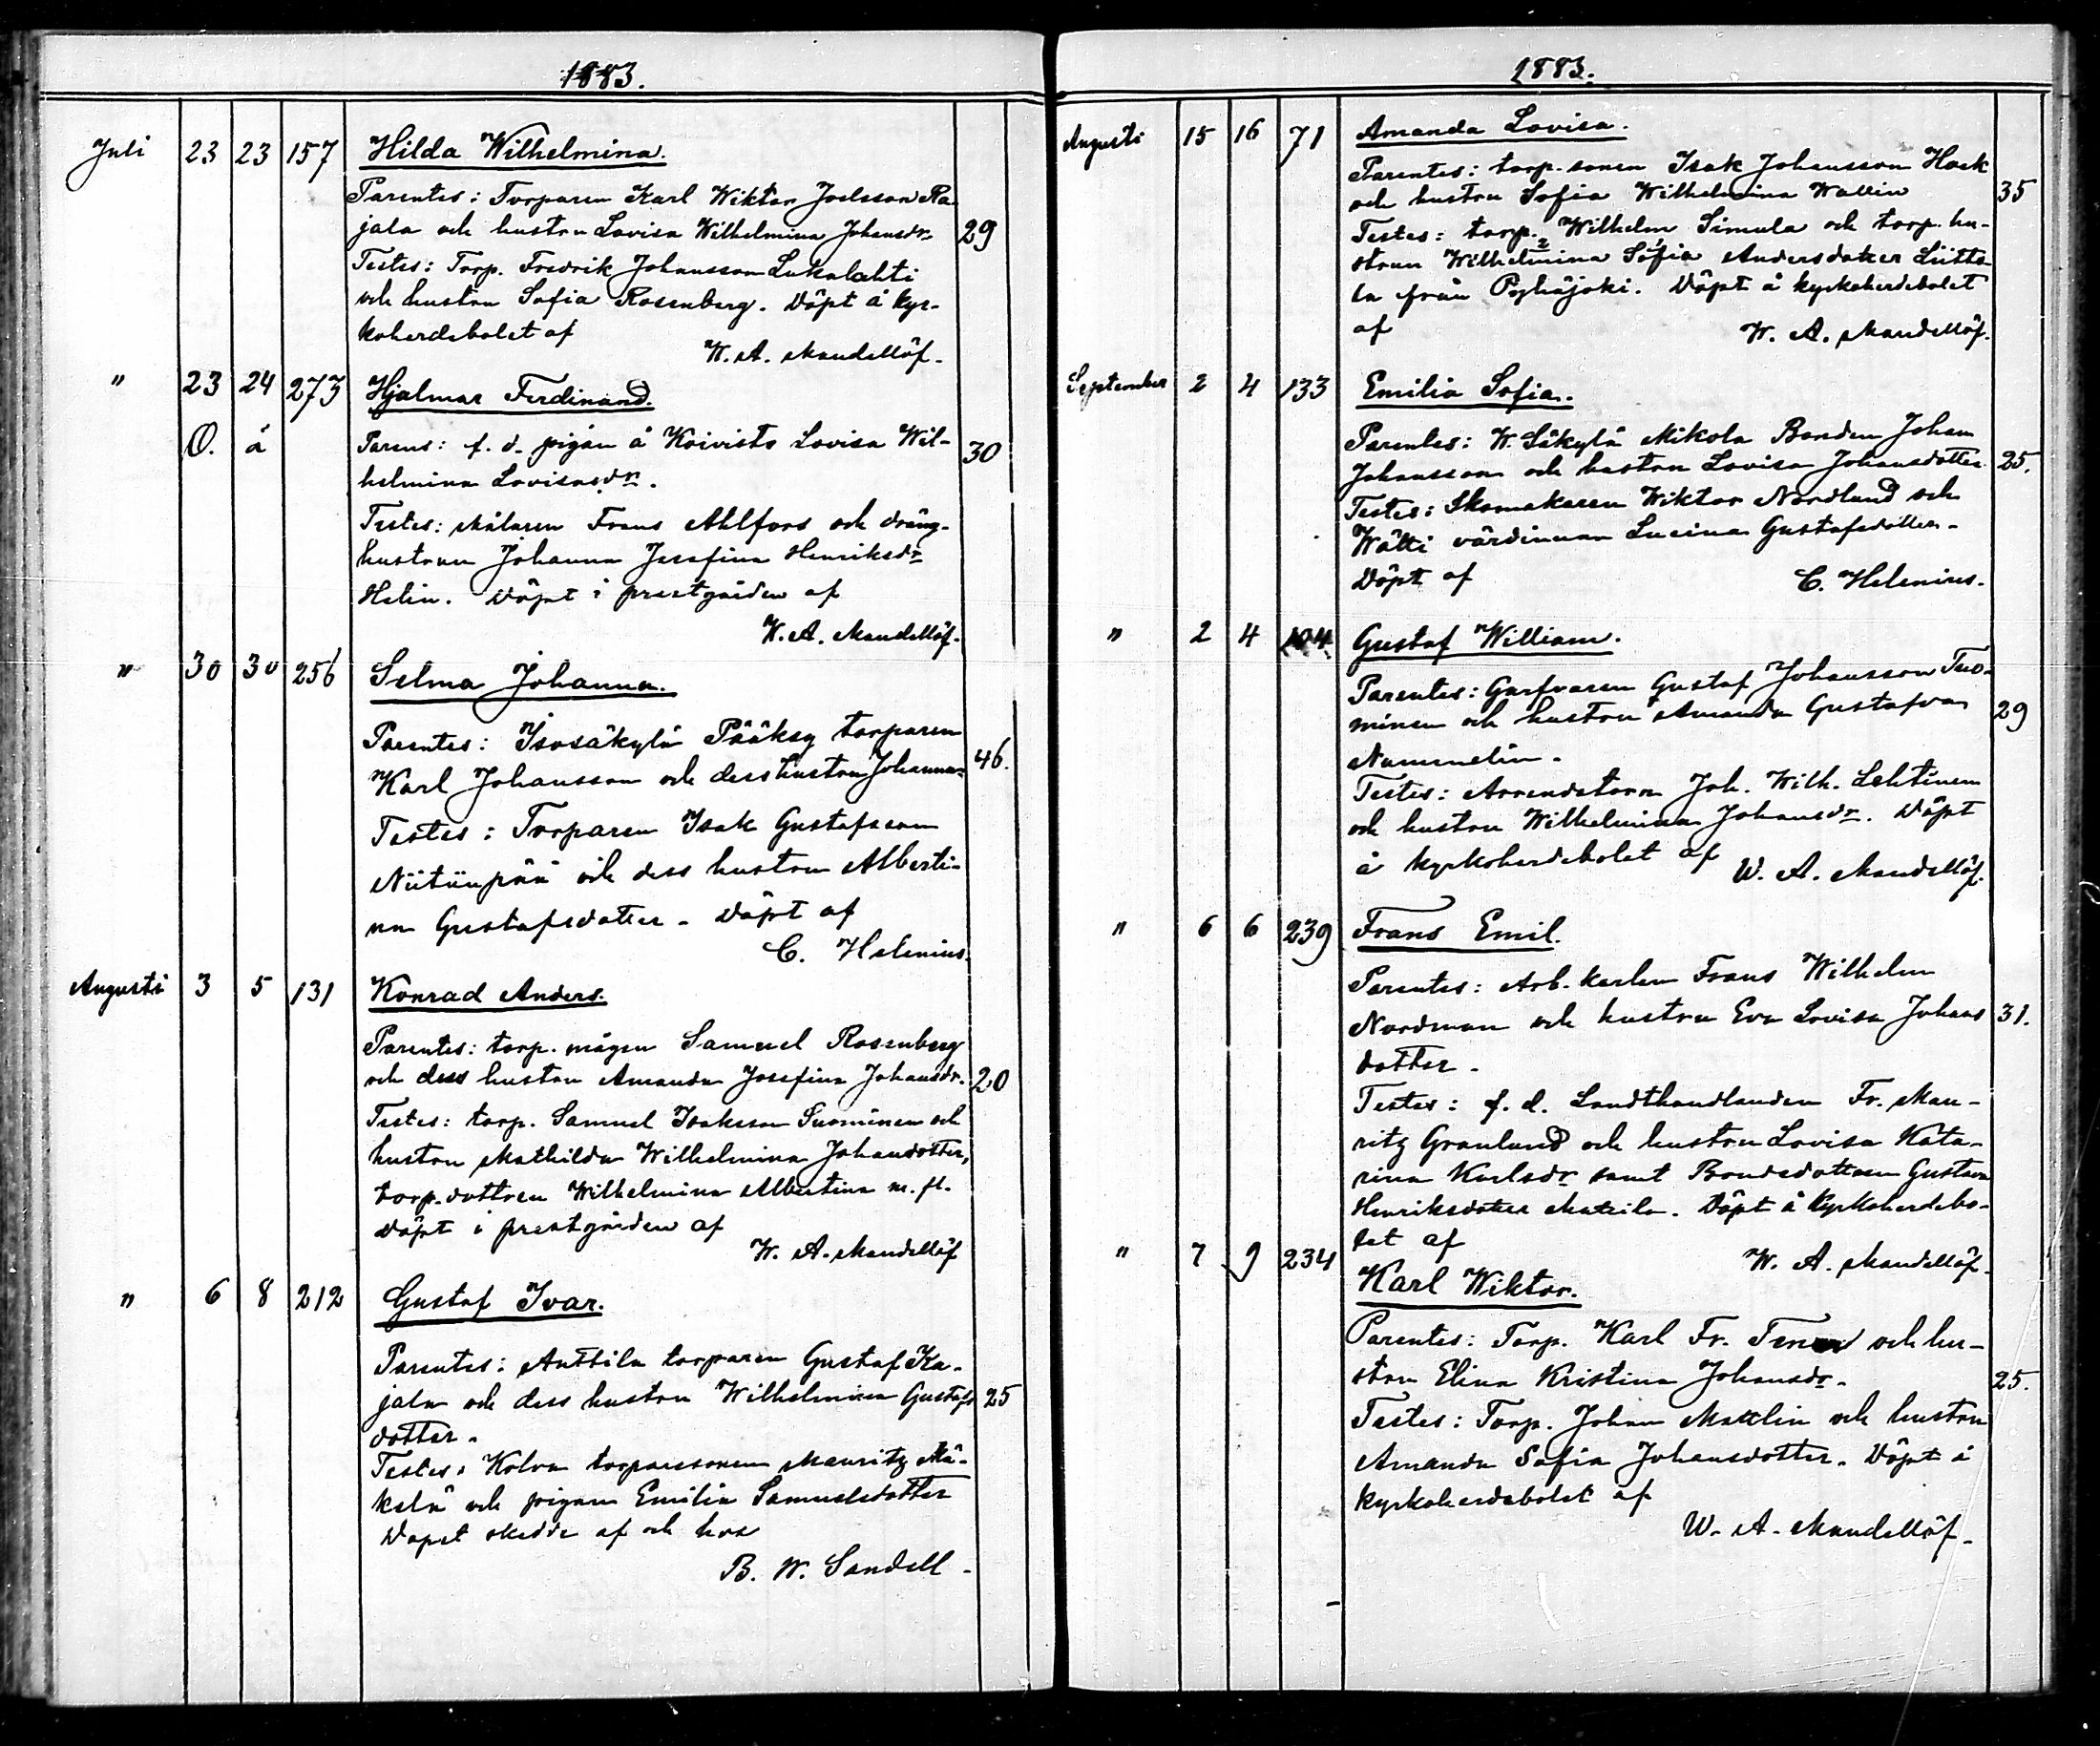 1883.
Juli 23 23 157 Hilda Wilhelmina.
Parentes: Torparen Karl Wiktor Joelsson Ra-
jala och hustru Lovisa Wilhelmina Johansdr. 29
Testes: Torp. Fredrik Johansson Lukalahti
och hustru Sofia Rosenberg. Döpt å kyr-
koherdebolet af
W. A. Mandellöf.
" 23 24 273 Hjalmar Ferdinand.
O. ä
Parens: f. d. pigan å Koivisto Lovisa Wil- 30
helmina Lovisasdr.
Testes: Målaren Frans Ahlfors och dräng-
hustrun Johanna Josefina Henriksdr
Helin. Döpt i prestgården af
W. A. Mandellöf.
" 30 30 256 Selma Johanna.
Parentes: Isosäkylä Pääksy torparen
Karl Johansson och dess hustru Johanna 46.
Testes: Torparen Isak Gustafsson
Niitunpää och dess hustru Alberti-
na Gustafsdotter. Döpt af
C. Helenius.
Augusti 3 5 131 Konrad Anders.
Parentes: torp. mågen Samuel Rosenberg
och dess hustru Amanda Josefina Johansdr. 20
Testes: torp. Samuel Isaksson Suominen och
hustru Mathilda Wilhelmina Johansdotter,
torp. dottren Wilhelmina Albertina m. fl.
Döpt i prestgården af
W. A. Mandellöf
" 6 8 212 Gustaf Ivar.
Parentes: Anttila torparen Gustaf Ka-
jala och dess hustru Wilhelmina Gustafs 25
dotter.
Testes: Kolva torparesonen Mauritz Mä-
kelä och pigan Emilia Samuelsdotter
Dopet skedde af och hos
B. W. Sandell.
1883.
Augusti 15 16 71 Amanda Lovisa.
Parentes: torp. sonen Isak Johansson Hoek
och hustru Sofia Wilhelmina Wallin 35
Testes: torp. Wilhelm Simula och torp. hu-
strun Wilhelmina Sofia Andersdoter Liitto-
la från Pyhäjoki. Döpt å kyrkoherdebolet
af
W. A. Mandellöf.
September 2 4 133 Emilia Sofia.
Parentes: W. Säkylä Mikola Bonden Johan
Johansson och hustru Lovisa Johansdotter 25.
Testes: Skomakaren Wiktor Nordlund och
Wätti värdinnan Lucina Gustafsdotter.
Döpt af
C. Helenius.
" 2 4 104 Gustaf William.
Parentes: Garfvaren Gustaf Johansson Tuo-
minen och hustru Amanda Gustafva 29
Nummelin.
Testes: Arrendatorn Joh. Wilh. Lehtinen
och hustru Wilhelmina Johansdr. Döpt
å kyrkoherdebolet af
W. A. Mandellöf.
" 6 6 239 Frans Emil.
Parentes: Arb. karlen Frans Wilhelm
Nordman och hustru Eva Lovisa Johans 31.
dotter.
Testes: f. d. Landthandlanden Fr. Mau-
ritz Granlund och hustru Lovisa Kata-
rina Karlsdr samt Bondedottren Gustava
Henriksdoter Mattila. Döpt å kyrkoherdebo-
let af
W. A. Mandellöf.
" 7 9 234 Karl Wiktor.
Parentes: Torp. Karl Fr. och hu-
stru Elina Kristina Johansdr. 25.
Testes: Torp. Johan Mattlin och hustru
Amanda Sofia Johansdotter. Döpt å
kyrkoherdebolet af
W. A. Mandellöf.